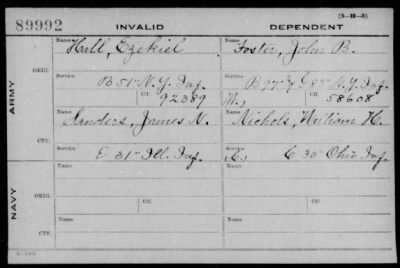 (3-18-3)
89992 INVALID DEPENDENT
Name Name
Hall, Ezekiel Foster, John B.
ARMY
ORIG.
Service Service
B 51" N.Y. Inf. B 77" & G 85" N.Y. Inf.
Ctf. Ctf.
92389 M, 58608
Name Name
Sanders, James N. Nichols, William H.
CTF.
Service Service
E 31" Ill. Inf. C, C 30" Ohio Inf.
NAVY
Name Name
ORIG.
Ctf. Ctf.
Name Name
CTF.